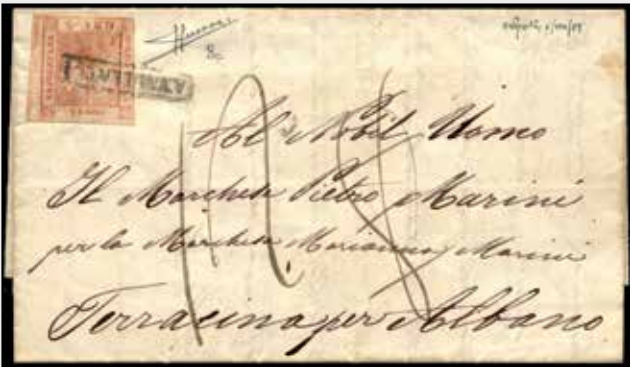 ANNULLATO
Al Nobil Uomo
Il Marchese Pietro Marini
per la Marchesa Marianna Marini
Terracina per Albano